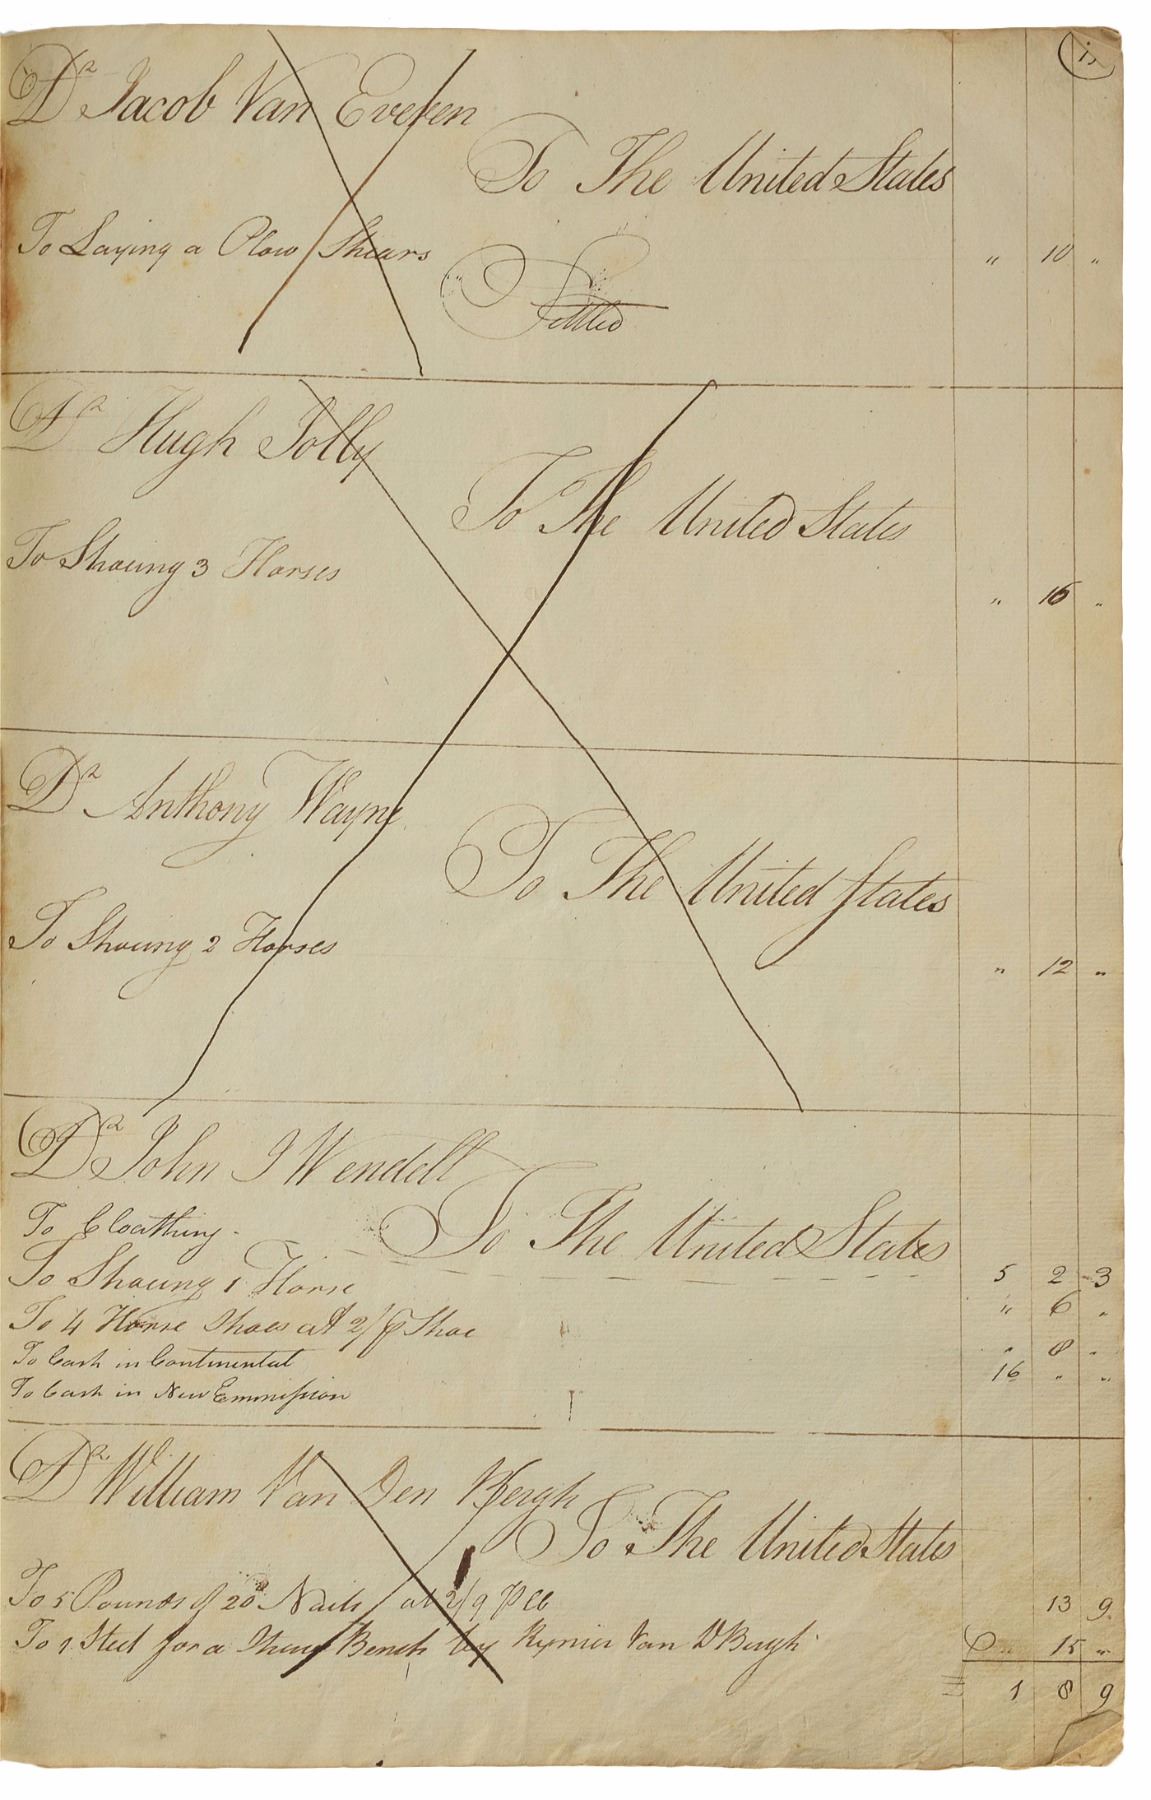 Dr Jacob Van Everen
To The United States
To Laying a Plow Shears " 10 "
Settled
Dr Hugh Jolly
To The United States
To Shoeing 3 Horses " 16 "
Dr Anthony Wayne
To The United States
To Shoeing 2 Horses " 12 "
Dr John J Wendell
To The United States
To Cloathing - 5 2 3
To Shoeing 1 Horse " 6 "
To 4 Horse Shoes at 2/ ℔ Shoe " 8 "
To Cash in Continental 16 " "
To Cash in New Emmission
Dr William Van Den Bergh
To The United States
To 5 Pounds of 20d Nails at 2/9 ℔ lb 13 9
To 1 Steel for a Bench by Rynier Van D Bergh 15 "
1 8 9